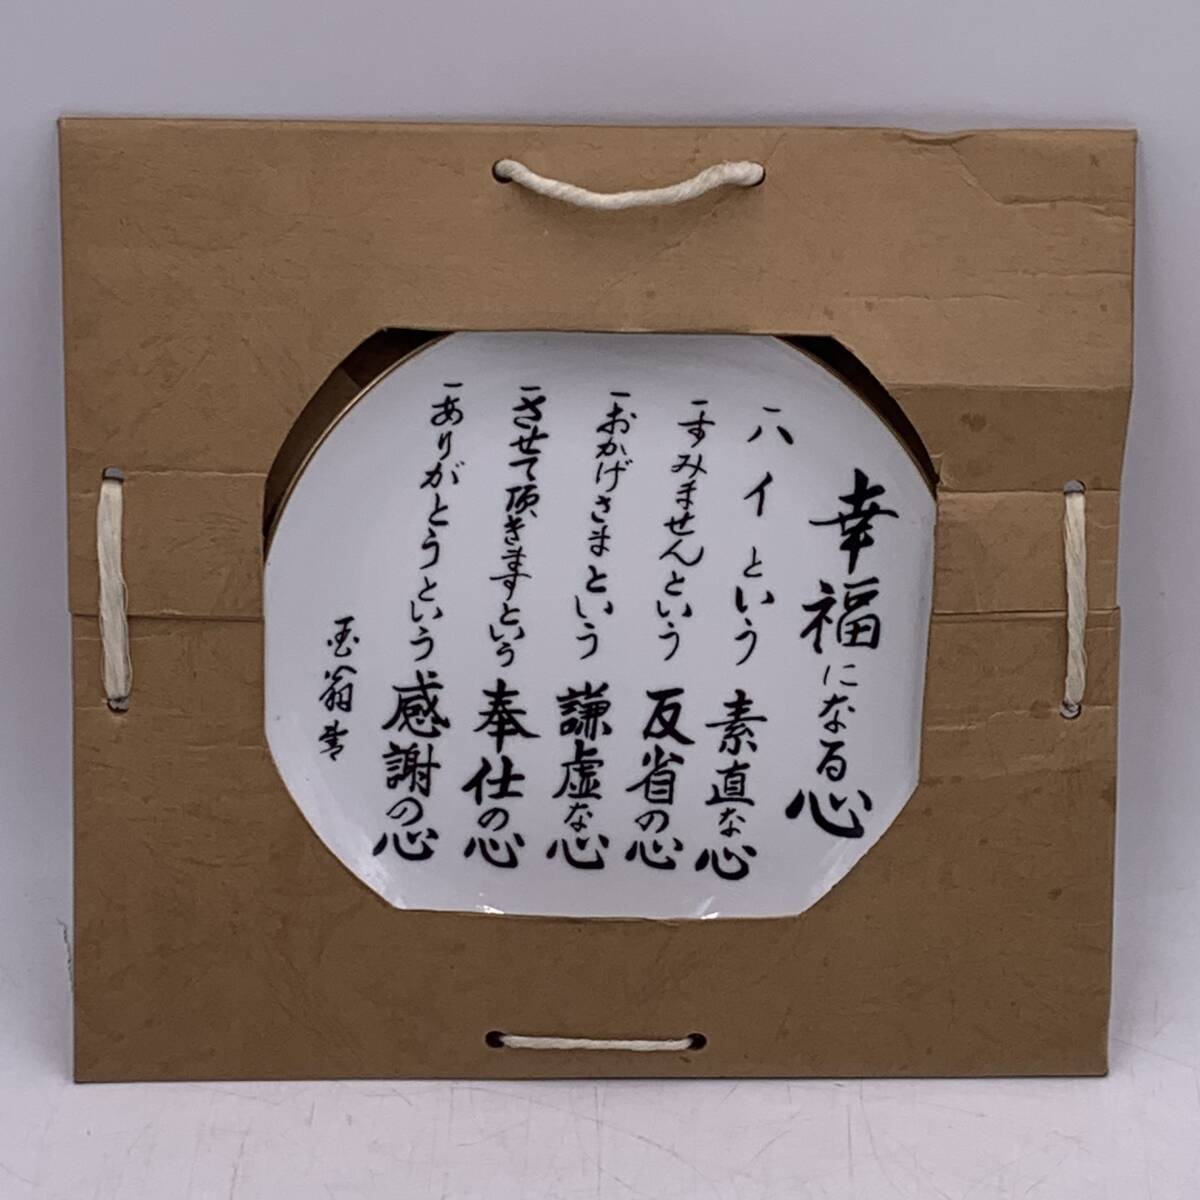 幸福になる心
一ハイという素直な心
一すみませんという反省の心
一おかげさまという謙虚な心
一させて頂きますという奉仕の心
一ありがとうという感謝の心